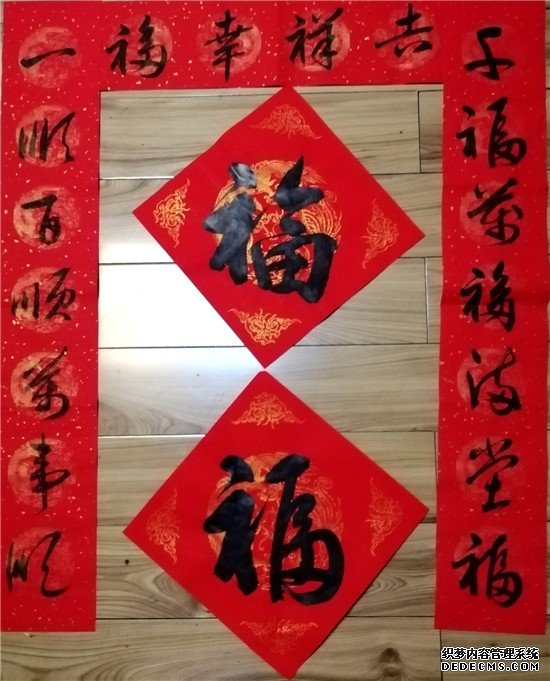 吉祥幸福
千福萬福满堂福
一顺百顺萬事顺
福
福
织梦内容管理系统
DEDECMS.COM